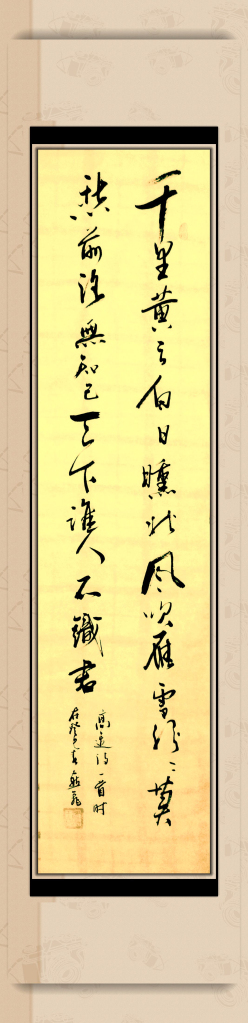 千里黄云白日曛北风吹雁雪纷々莫
愁前路无知己天下谁人不识君
高适诗一首时